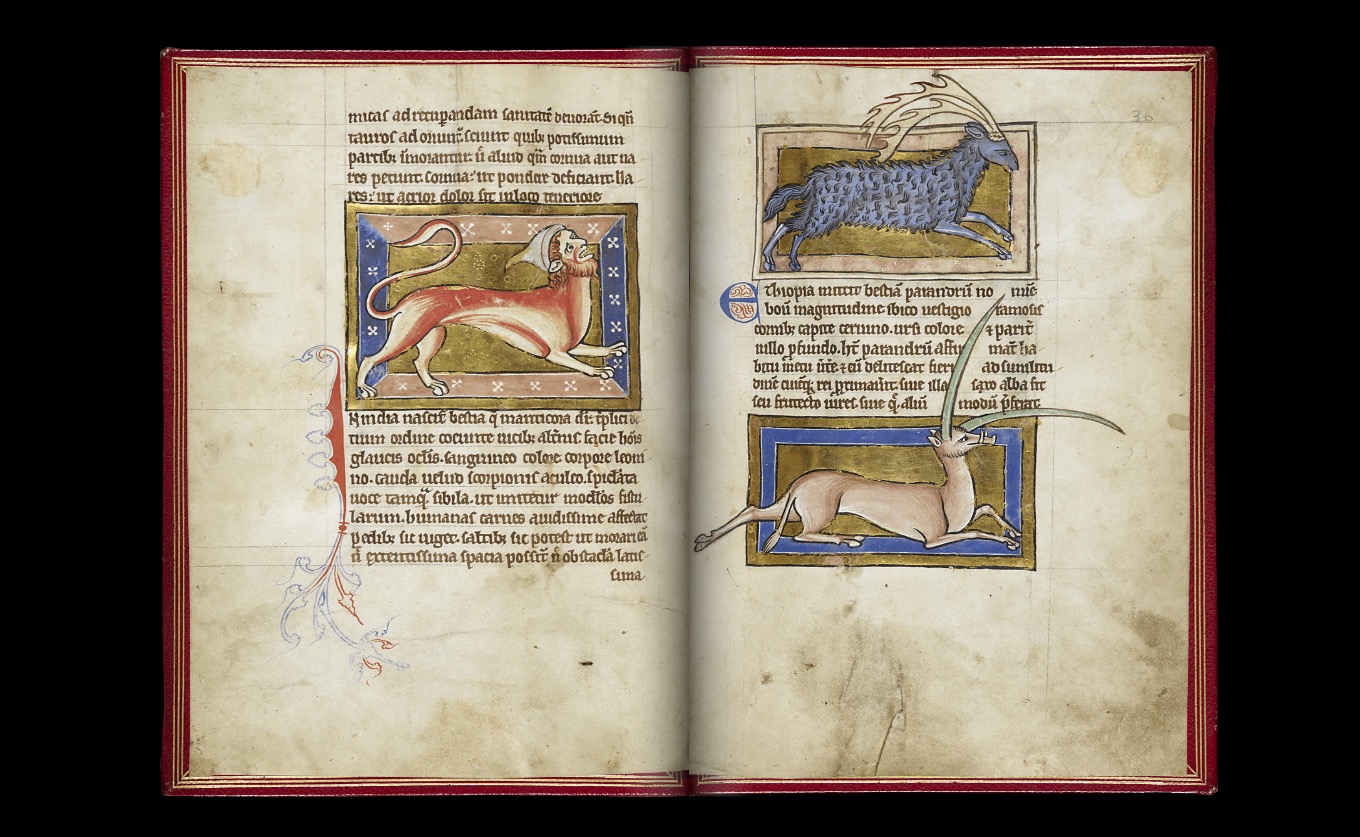 micas ad recupandam sanitatē deuorāt. Si qñ
tauros adoriunt̃ sciunt quibꝫ potissimum
partibꝫ imorantur. ñ aliud qm̃ cornua aut na
res petunt. cornua: ut pondere deficiant. na
res: ut acrior dolor sit in loco teneriore
N india nascit̃ bestia q̃ manticora dr̃. tͥplici de
tium ordine coeunte uicibꝫ alt̃nis facie hoīs
glaucis oclis. sanguineo colore corpore leoni
no. cauda uelud scorpionis aculeo. spiclata
uoce tamq̃ sibila. ut imitetur modlos fistu
larum. humanas carnes auidissime affectat
pedibꝫ sic uiget. saltibꝫ sic potest ut morari eā
ñ extentissima spacia possēt ñ obstacla latis
sima
30
Ethiopia mittit bestiā parandrū no mīe
boū magnitudine ibico uestigio ramosis
cornibꝫ capite ceruino. ursi colore ⁊ parit̃
uillo pfundo. hc̃ parandrū affir mat̃ ha
bitū metu ūtere ⁊ cū delitescat fieri ad similitu
dinē cuiꝯqꝫ rei pximauit̃ siue illa saxo alba sit
seu frutecto uiret. siue q̃ aliū modū p̃ferat